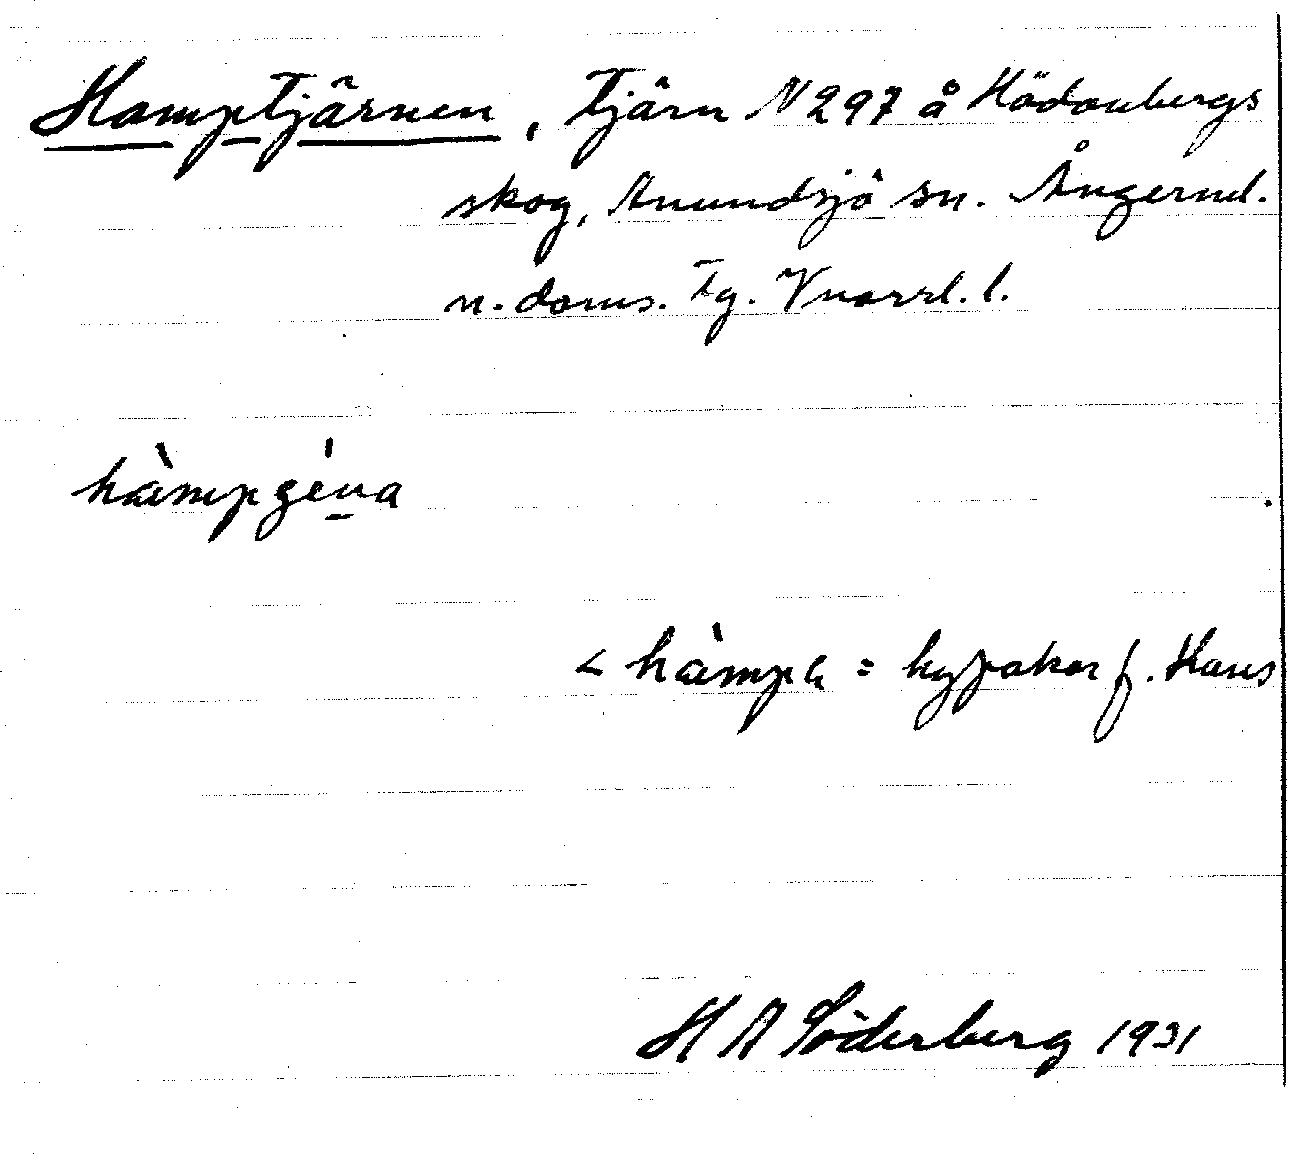 Hamptjärnen, Tjärn N 297 å Hädanbergs
skog, Anundsjö sn. Ångerml.
n. doms. Tg. l.
hàmpǥe̍na
< hàmpa = f. Hans
H A Söderberg 1931